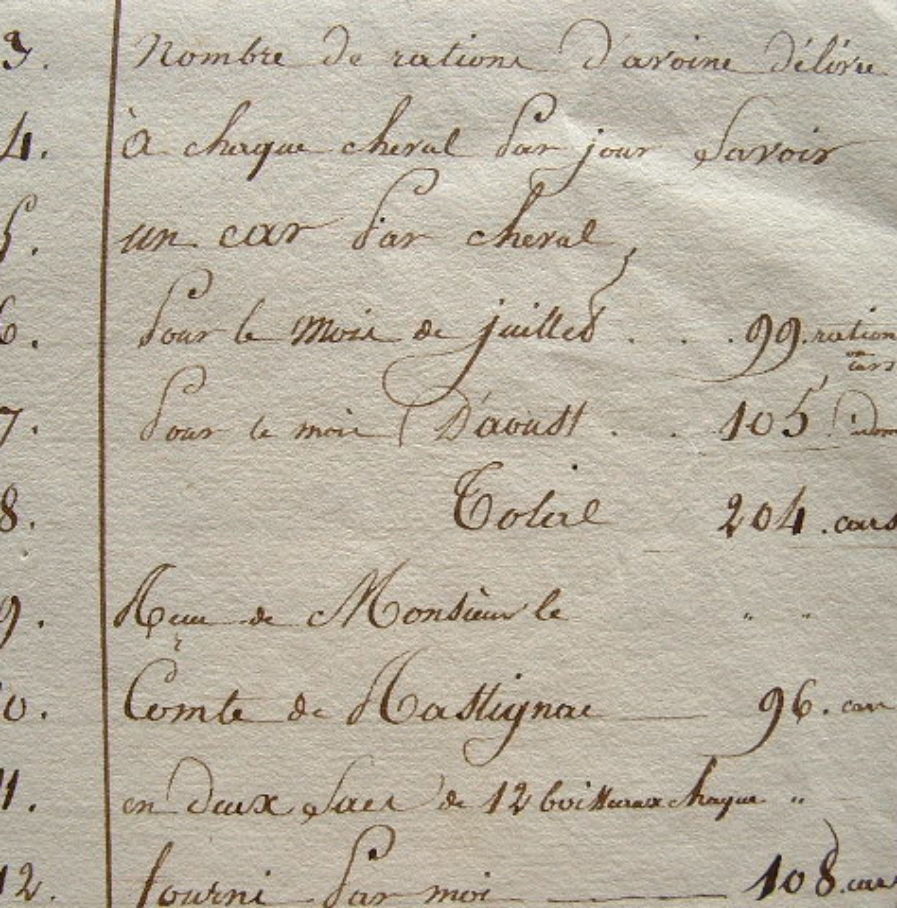 3. Nombre de rations d'avoine délivré
4. à chaque cheval Par jour Savoir
5. un car Par cheval,
6. Pour le Mois de juillet . . . 99. ration
ou cars
7. Pour le mois D'aoust . . 105. idem
8. Total 204. cars
9. Reçu de Monsieur le " "
10. Comte de Rastignac — 96. car
11. en deux Sacs de 12 boisseaux chaque "
12. fourni Par moi — 108. cars